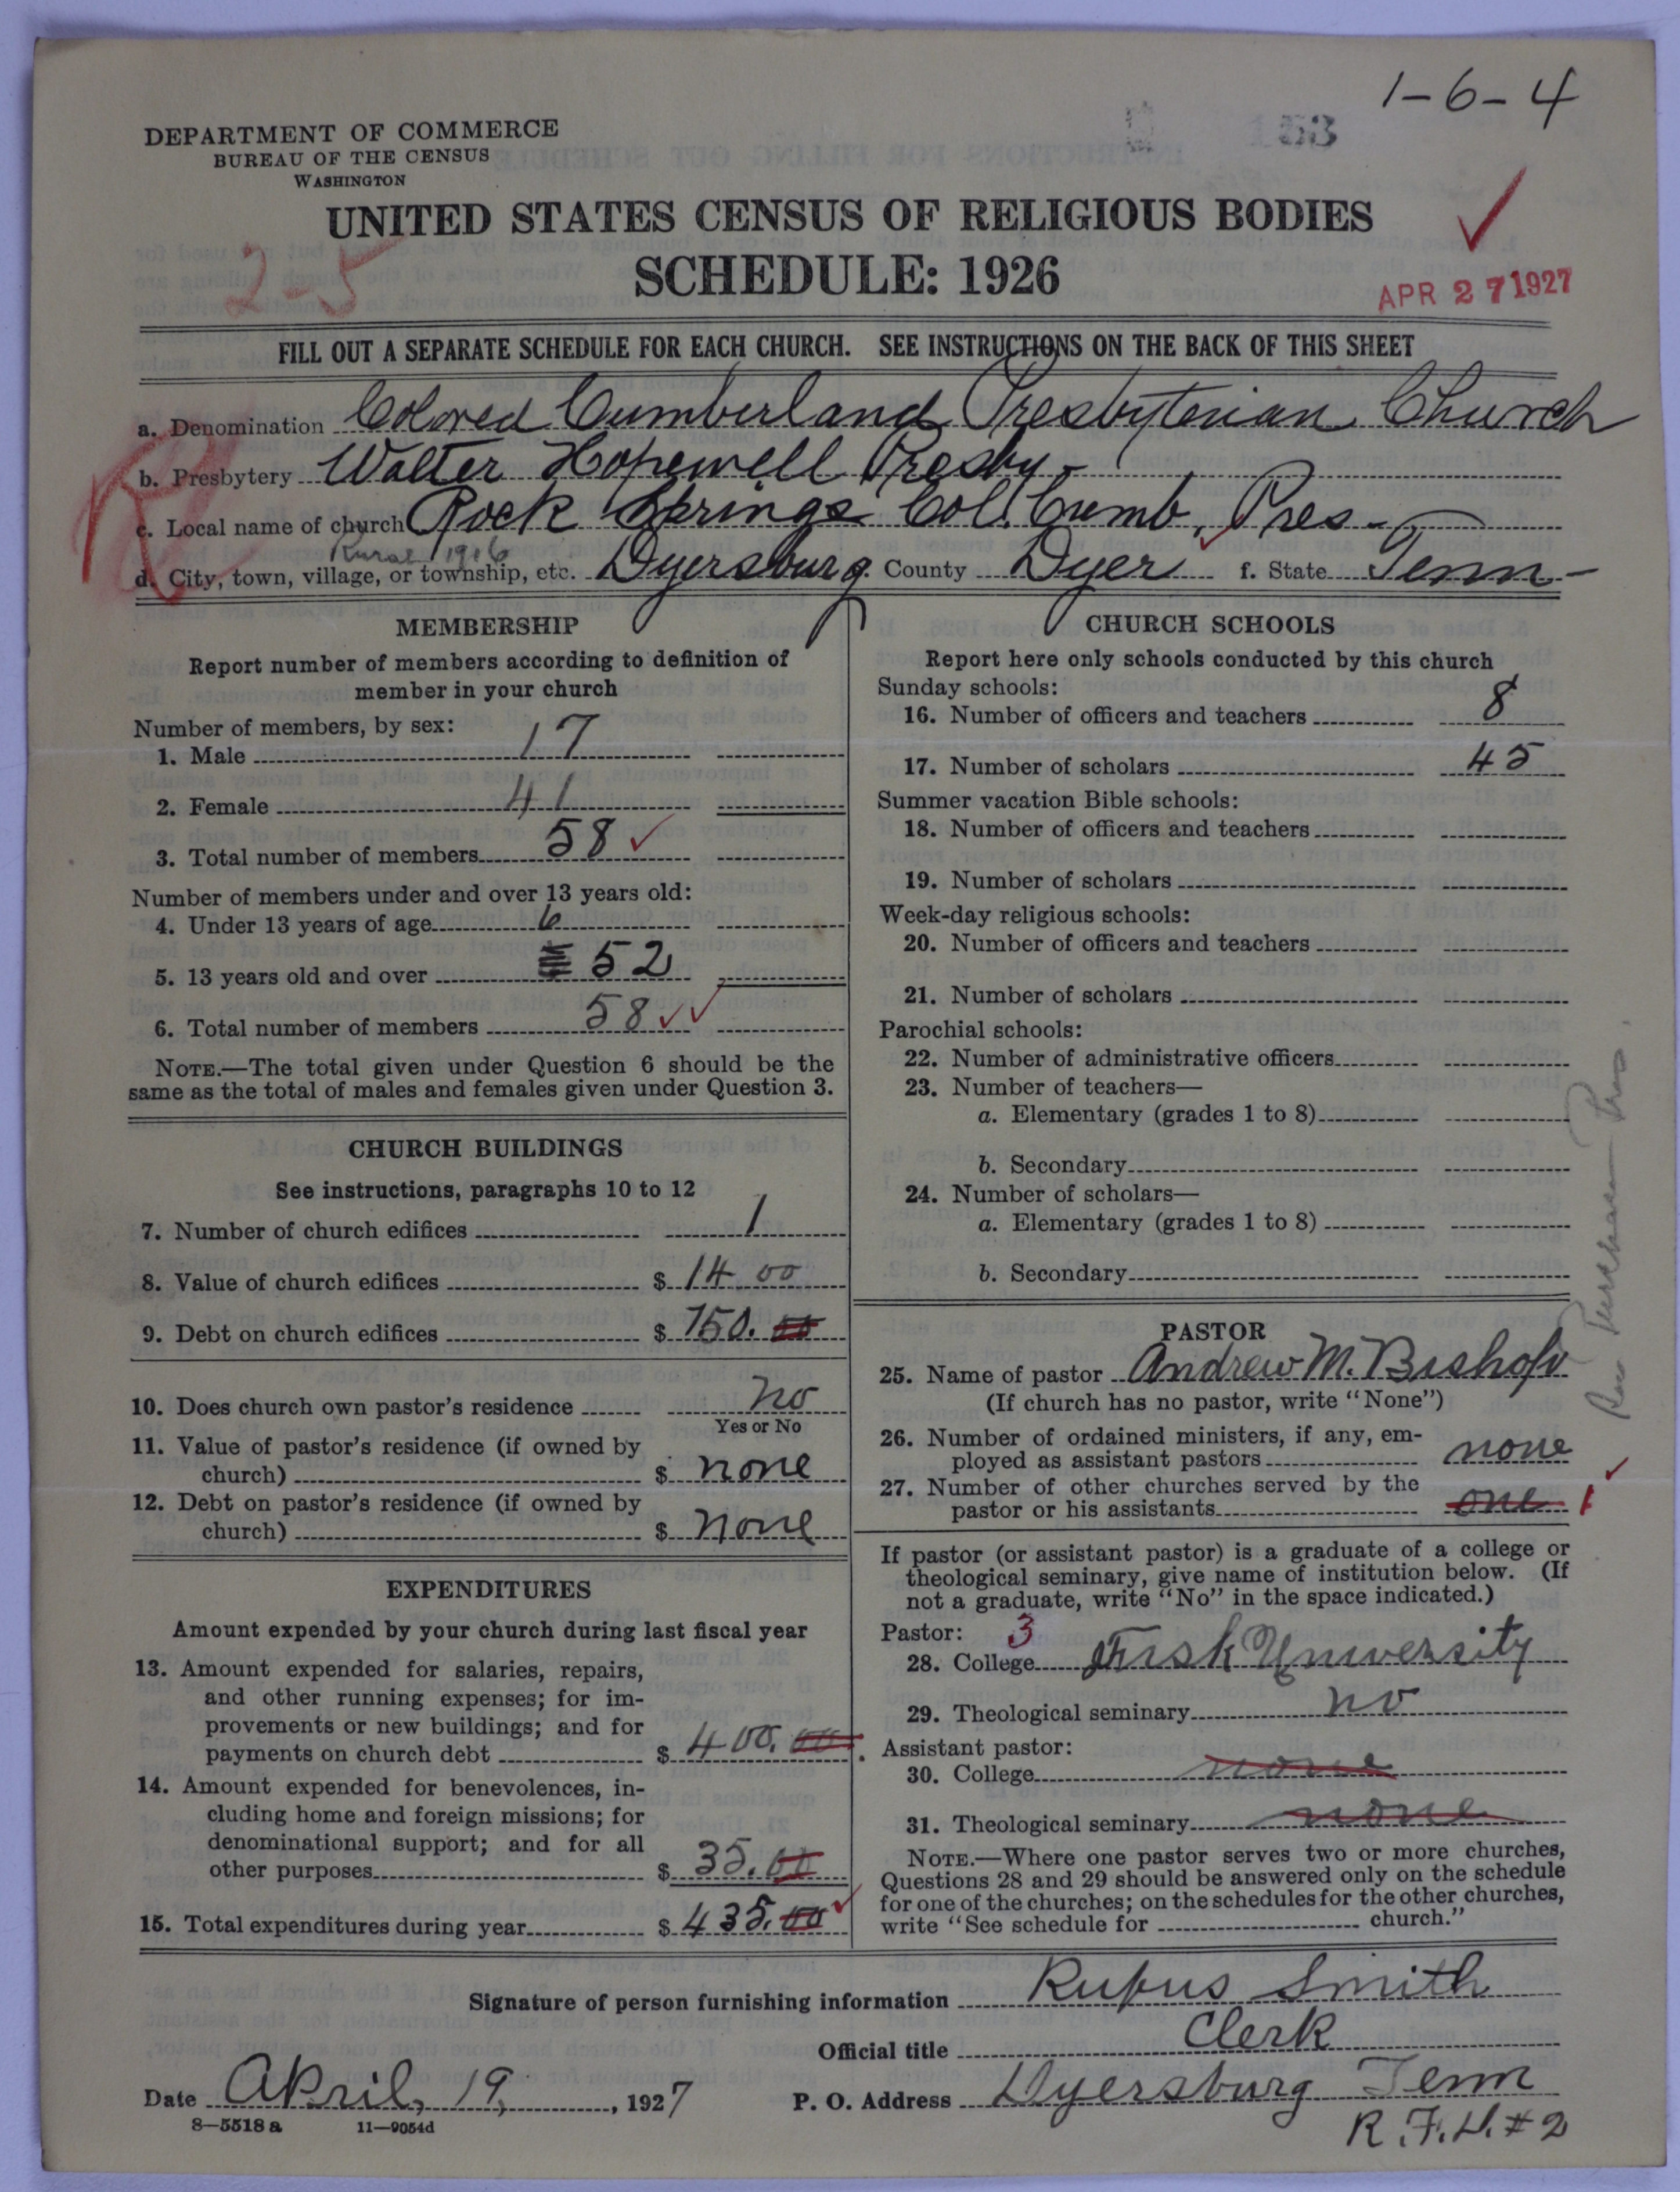 1-6-4
153
DEPARTMENT OF COMMERCE
BUREAU OF THE CENSUS
WASHINGTON
UNITED STATES CENSUS OF RELIGIOUS BODIES
SCHEDULE: 1926
2-5
APR 27 1927
FILL OUT A SEPARATE SCHEDULE FOR EACH CHURCH. SEE INSTRUCTIONS ON THE BACK OF THIS SHEET
a. Denomination Colored Cumberland Presbyterian Church
b. Presbytery Walter Hopewell Presby-
c. Local name of church Rock Springs Col. Cumb. Pres-
Rural 1916
d. City, town, village, or township, etc. Dyersburg. County Dyer f. State Tenn-
MEMBERSHIP
Report number of members according to definition of
member in your church
Number of members, by sex:
1. Male 17
2. Female 41
3. Total number of members 58 ✓
Number of members under and over 13 years old:
4. Under 13 years of age 6
5. 13 years old and over 52
6. Total number of members 58 ✓✓
NOTE.—The total given under Question 6 should be the
same as the total of males and females given under Question 3.
CHURCH BUILDINGS
See instructions, paragraphs 10 to 12
7. Number of church edifices 1
8. Value of church edifices $ 14 00
9. Debt on church edifices $ 750. 00
10. Does church own pastor's residence no
Yes or No
11. Value of pastor's residence (if owned by
church) $ none
12. Debt on pastor's residence (if owned by
church) $ none
EXPENDITURES
Amount expended by your church during last fiscal year
13. Amount expended for salaries, repairs,
and other running expenses; for im-
provements or new buildings; and for
payments on church debt $ 400. 00
14. Amount expended for benevolences, in-
cluding home and foreign missions; for
denominational support; and for all
other purposes $ 35.00
15. Total expenditures during year $ 435.00 ✓
CHURCH SCHOOLS
Report here only schools conducted by this church
Sunday schools:
16. Number of officers and teachers 8
17. Number of scholars 45
Summer vacation Bible schools:
18. Number of officers and teachers
19. Number of scholars
Week-day religious schools:
20. Number of officers and teachers
21. Number of scholars
Parochial schools:
22. Number of administrative officers
23. Number of teachers—
a. Elementary (grades 1 to 8)
b. Secondary
24. Number of scholars—
a. Elementary (grades 1 to 8)
b. Secondary
PASTOR
25. Name of pastor Andrew M. Bishop
(If church has no pastor, write "None")
26. Number of ordained ministers, if any, em-
ployed as assistant pastors none
27. Number of other churches served by the
pastor or his assistants one 1 ✓
If pastor (or assistant pastor) is a graduate of a college or
theological seminary, give name of institution below. (If
not a graduate, write "No" in the space indicated.)
Pastor: 3
28. College Fisk University
29. Theological seminary no
Assistant pastor:
30. College none
31. Theological seminary none
NOTE.—Where one pastor serves two or more churches,
Questions 28 and 29 should be answered only on the schedule
for one of the churches; on the schedules for the other churches,
write "See schedule for church."
Signature of person furnishing information Rufus Smith
Official title Clerk
Date April, 19, 1927 P. O. Address Dyersburg Tenn
R.F.D.#2
8—5518 a 11—9054d